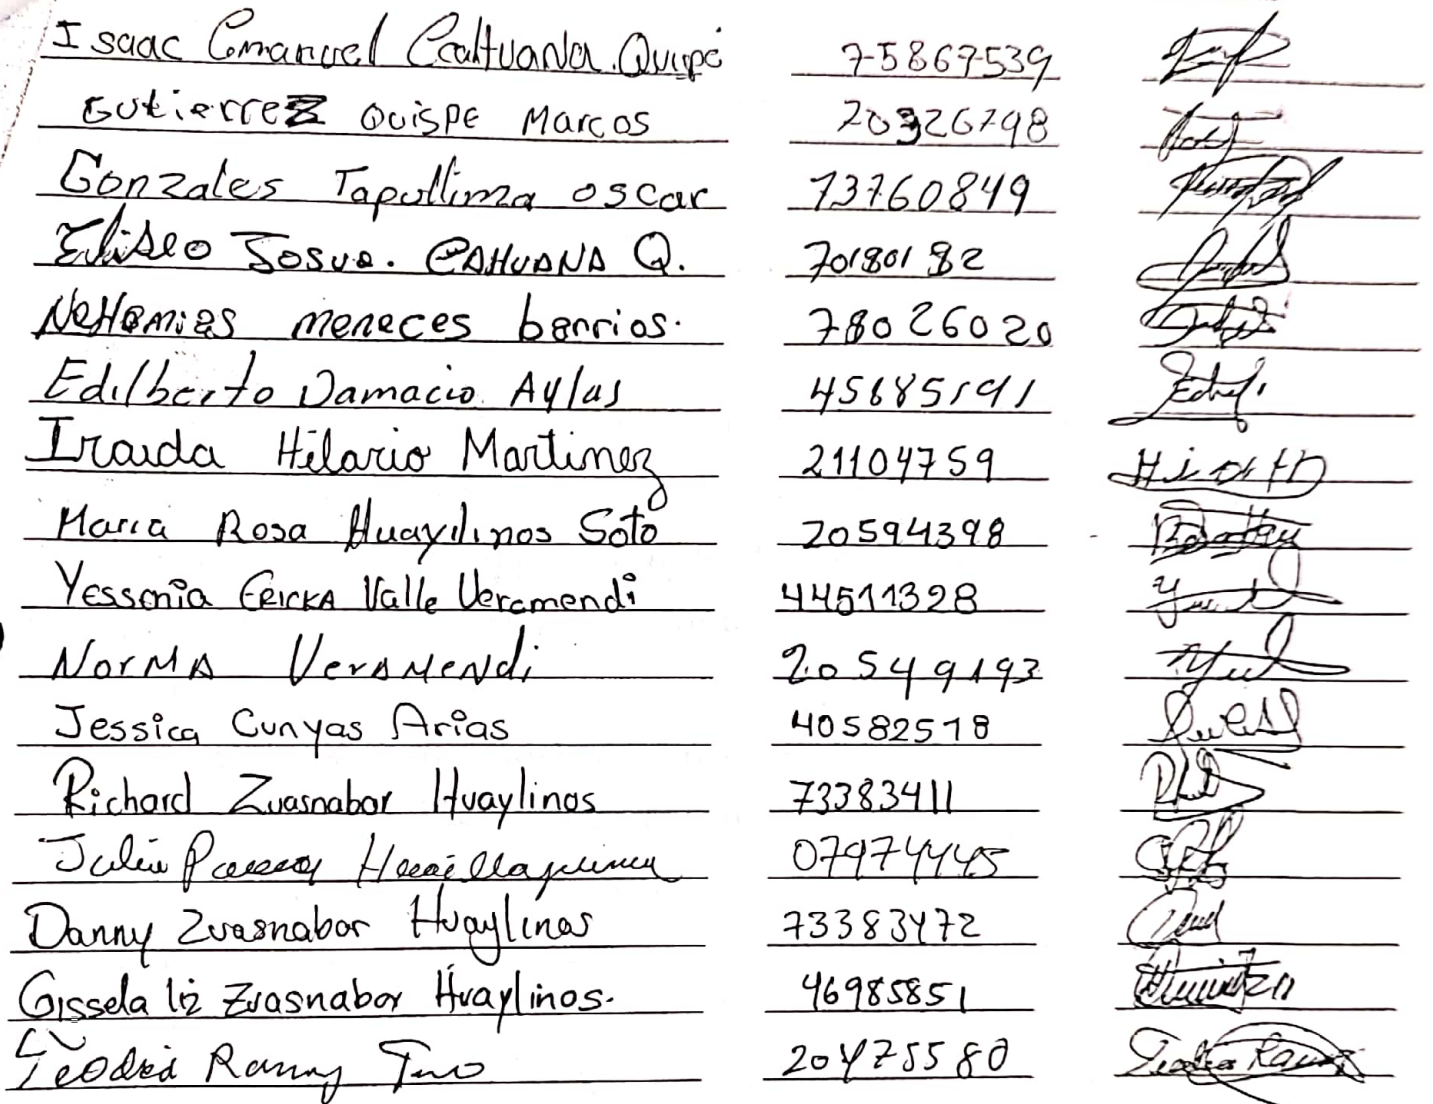 Isaac Emanuel Ccahuana Quipe 75867539
Gutierrez Quispe Marcos 70326798
Gonzales Tapullima oscar 73760849
Eliseo Josue. CAHUANA Q. 70180182
NeHemias meneces berrios. 78026020
Edilberto Damacio Aylas 45685191
Iraida Hilario Martinez 21104759
Maria Rosa Huaylinos Soto 20594398
Yessenia ERICKA Valle Veramendi 44511328
NorMA VerAMeNdi 20549193
Jessica Cunyas Arias 40582518
Richard Zuasnabar Huaylinos 73383411
Julia 07974445
Danny Zuasnabar Huaylinos 73383472
Gissela liz Zuasnabar Huaylinos. 46985851
Ramy 20475580